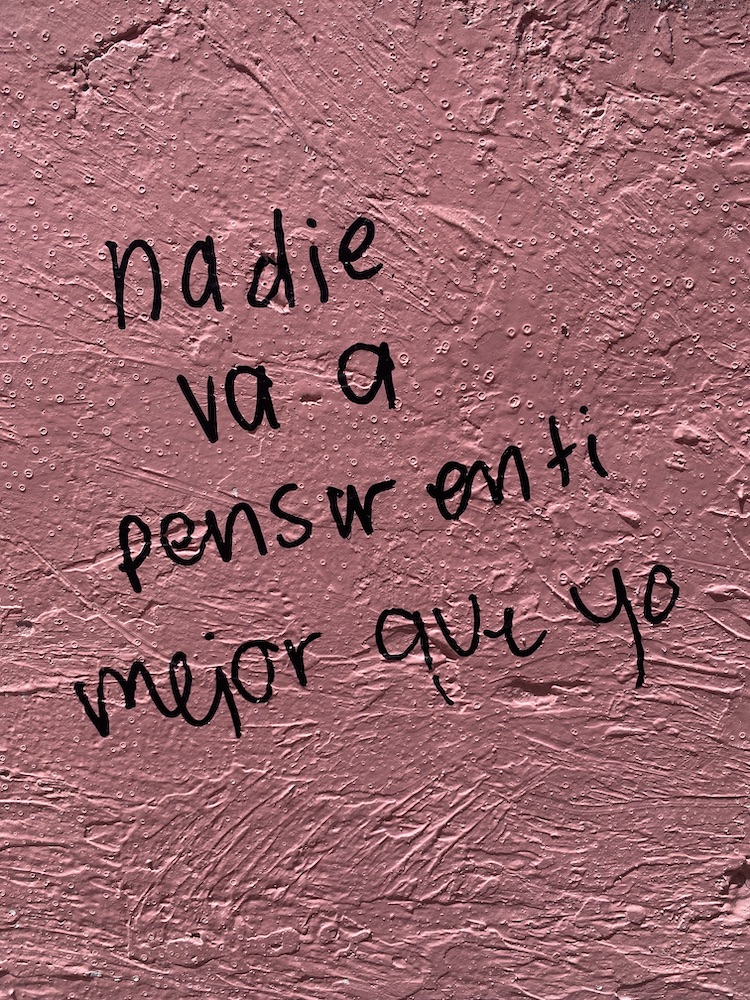 nadie
va a
pensar en ti
mejor que yo